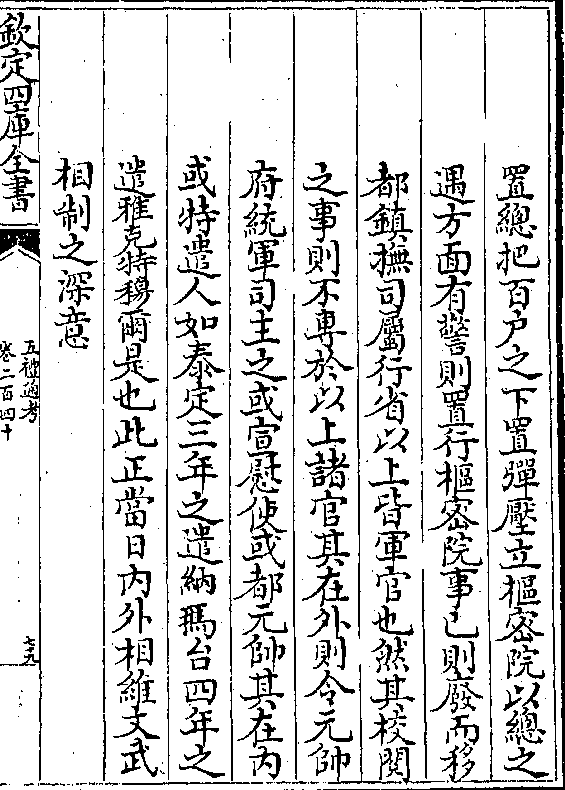 置總把百户之下置彈壓立樞密院以總之
遇方面有警則置行樞密院事已則廢而移
都鎮撫司屬行省以上皆軍官也然其校閱
之事則不專於以上諸官其在外則令元帥
府統軍司主之或宣慰使或都元帥其在内
或特遣人如泰定三年之遣納瑪台四年之
遣雅克特穆爾是也此正當日内外相維文武
相制之深意
欽定四庫全書
五禮通考
卷二百四十
七九